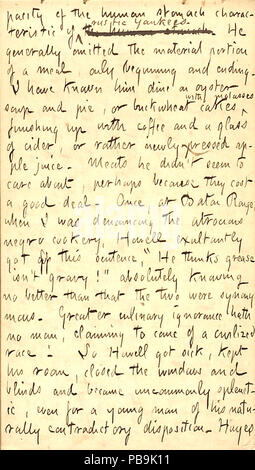 pacity of the human stomach charac-
teristic of rustic Yankees. He
generally omitted the material portion
of a meal, only beginning and ending.
I have known him dine on oyster
soup and pie, or buckwheat cakes, with molasses
finishing up with coffee and a glass
of cider, or rather newly-pressed ap-
ple juice. Meats he didn't seem to
care about, perhaps because they cost
a good deal. Once, at Baton Rouge,
when I was denouncing the atrocious
negro cookery, Howell exultantly
got off this sentence, "He thinks grease
isn't gravy!" absolutely knowing
no better than that the two were synony-
mous. Greater culinary ignorance hath
no man, claiming to come of a civilized
race. So Howell got sick, kept
his room, closed the windows and
blinds and became uncommonly splenet-
ic, even for a young man of his natu-
rally contradictory disposition. Hayes
alamy
Image ID: PB9K11
www.alamy.com